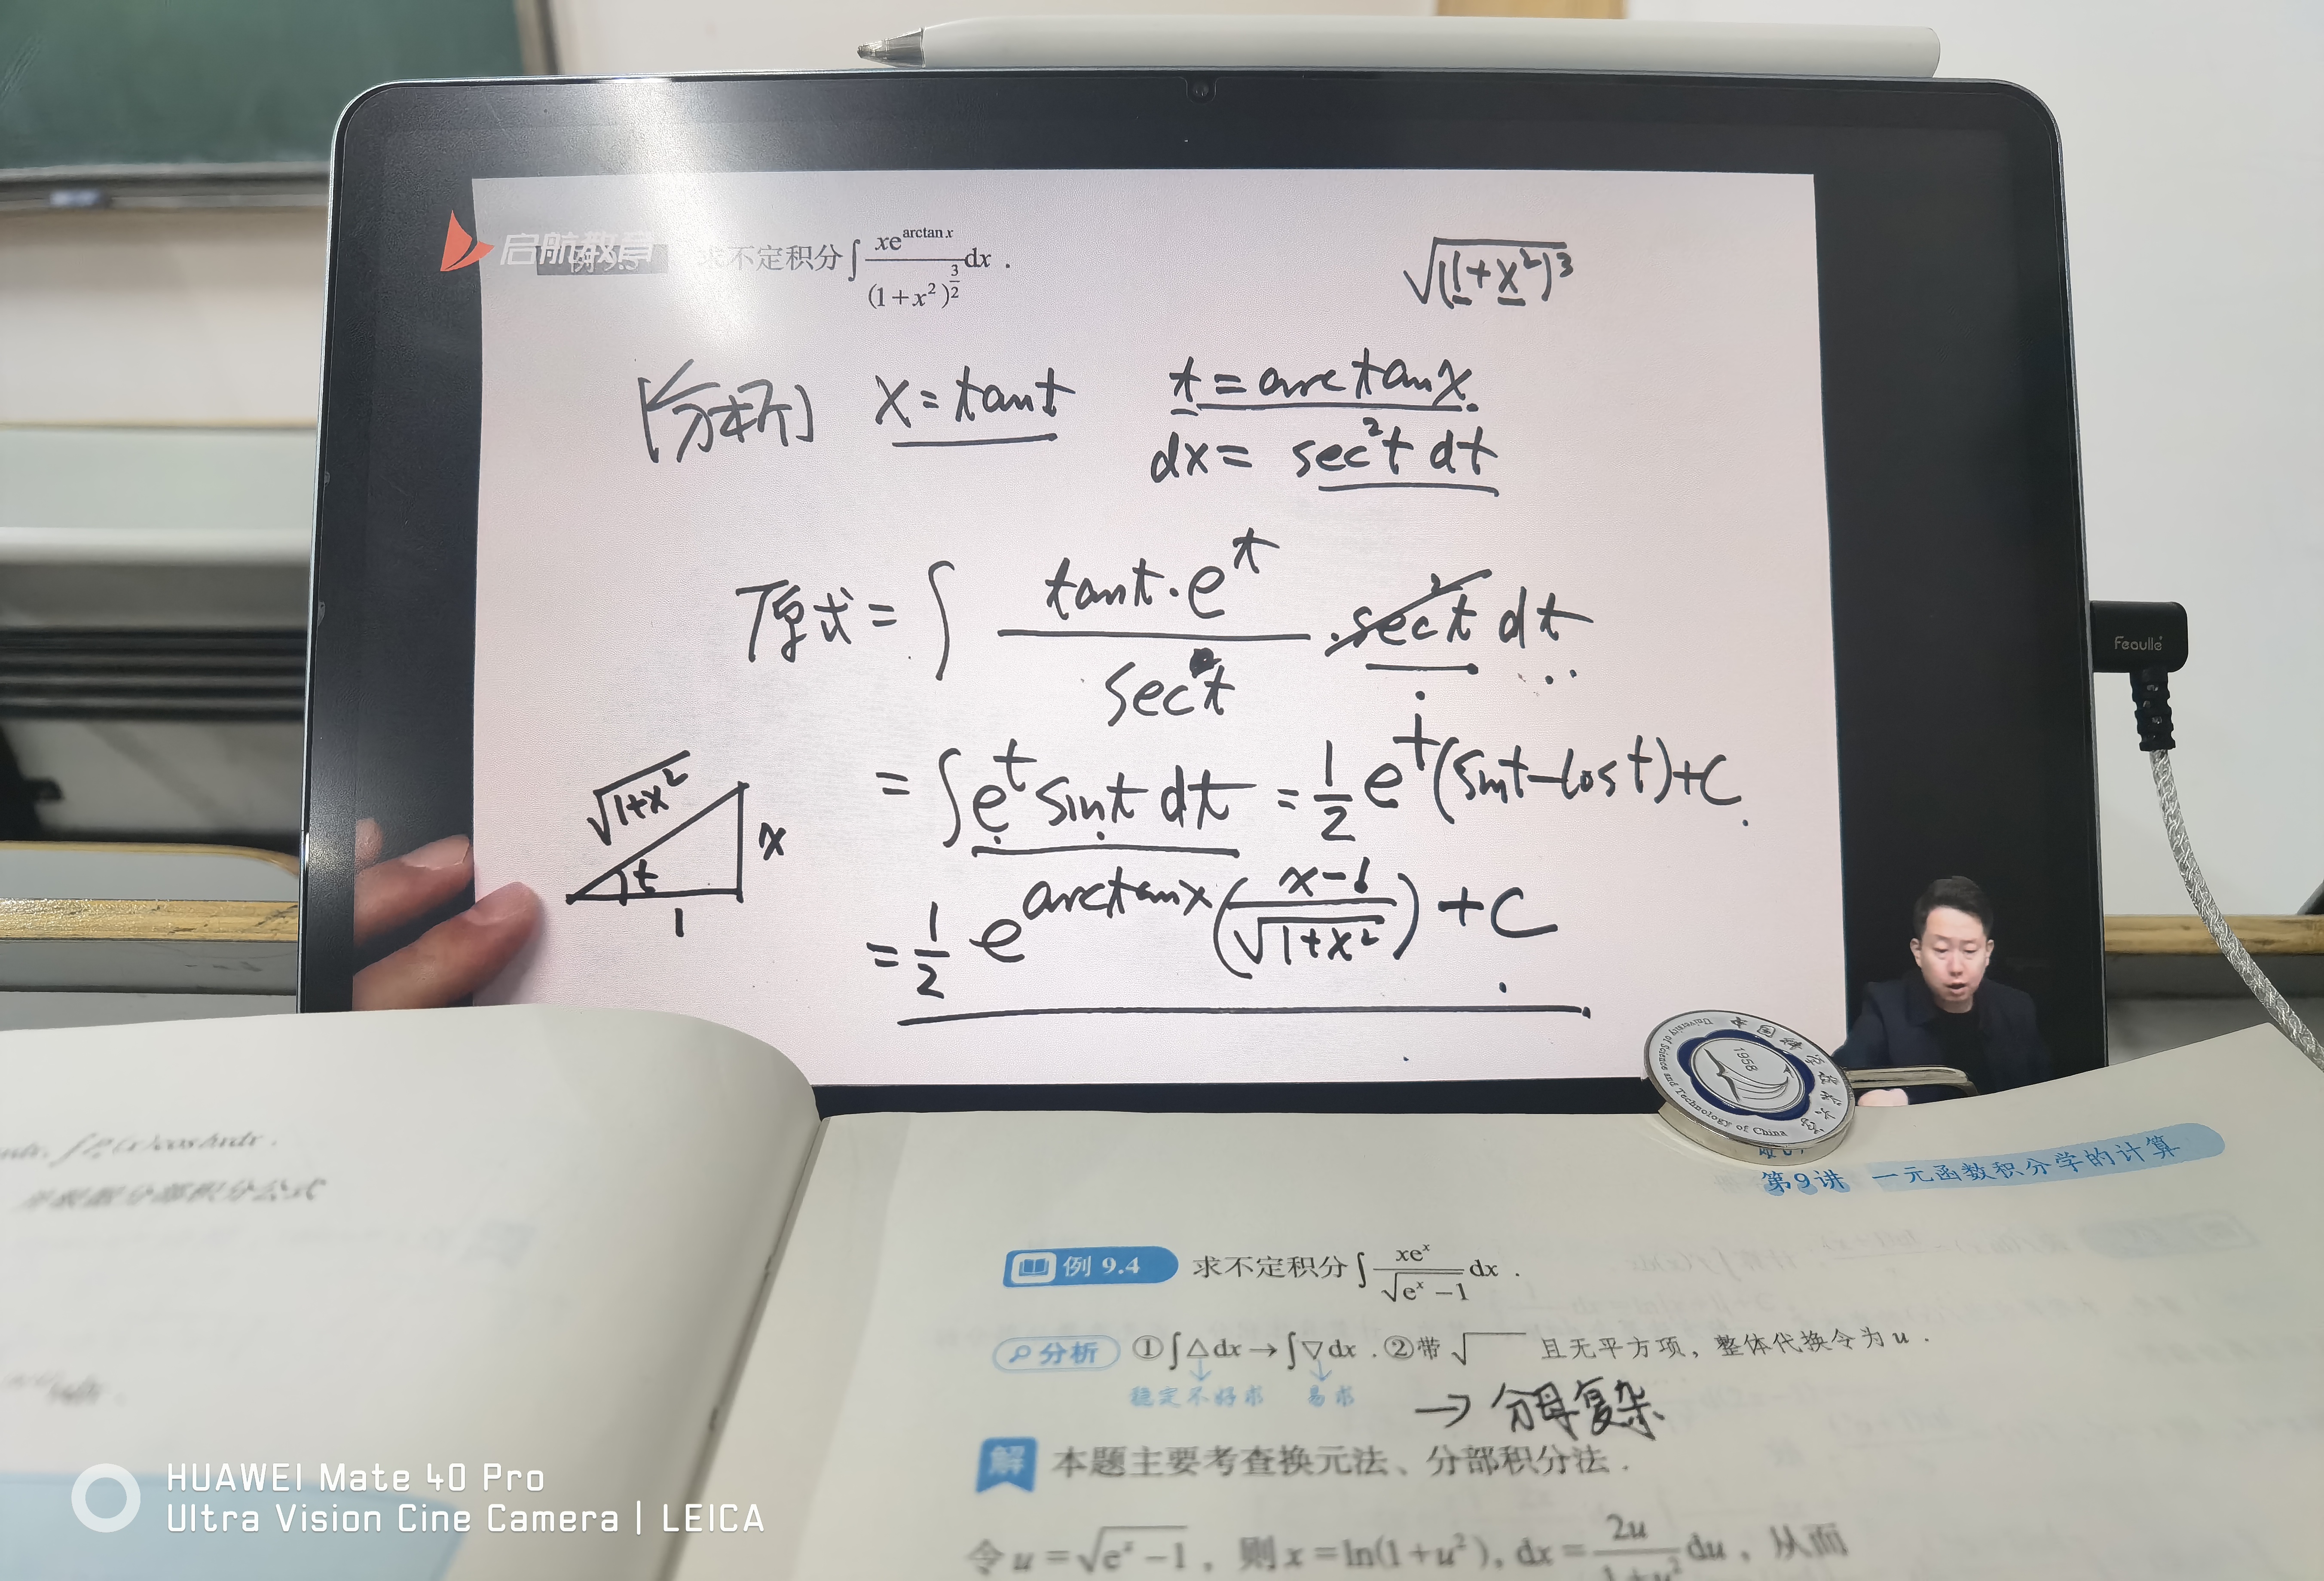 启航教育
求不定积分∫ xe^{arctan x} / (1+x²)^{3/2} dx .
√(1+x²)³
[分析] x = tant
t = arctanx.
dx = sec²t dt
原式 = ∫ tant·e^t / sec t · sec²t dt
= ∫ e^t sint dt = 1/2 e^t (sint-cost)+C.
√1+x²
x
t
1
= 1/2 e^{arctanx} (x-1 / √1+x²) + C.
Feaulle
1958
University of Science and Technology of China
第9讲 一元函数积分学的计算
例 9.4 求不定积分∫ xe^x / √(e^x −1) dx .
分析 ①∫△dx→∫▽dx . ②带√ 且无平方项，整体代换令为 u .
稳定不好求 易求
→ 分母复杂
解 本题主要考查换元法、分部积分法 .
令 u = √(e^x −1) , 则 x = ln(1+u²), dx = 2u / 1+u² du , 从而
分部积分公式
HUAWEI Mate 40 Pro
Ultra Vision Cine Camera | LEICA